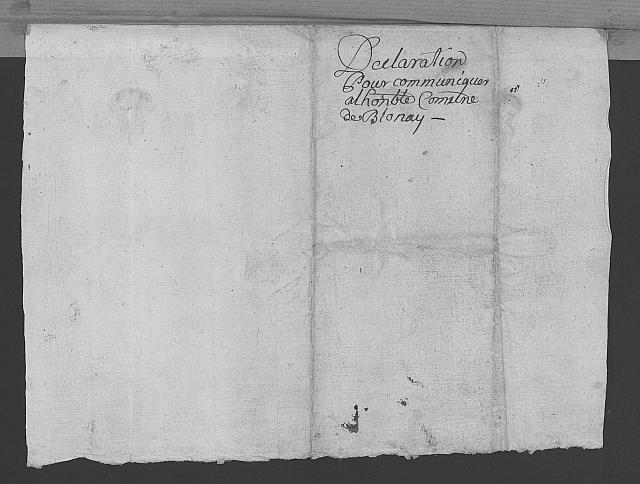 Declaration
Pour communiquer
a lhonble Comune
de Blonay —